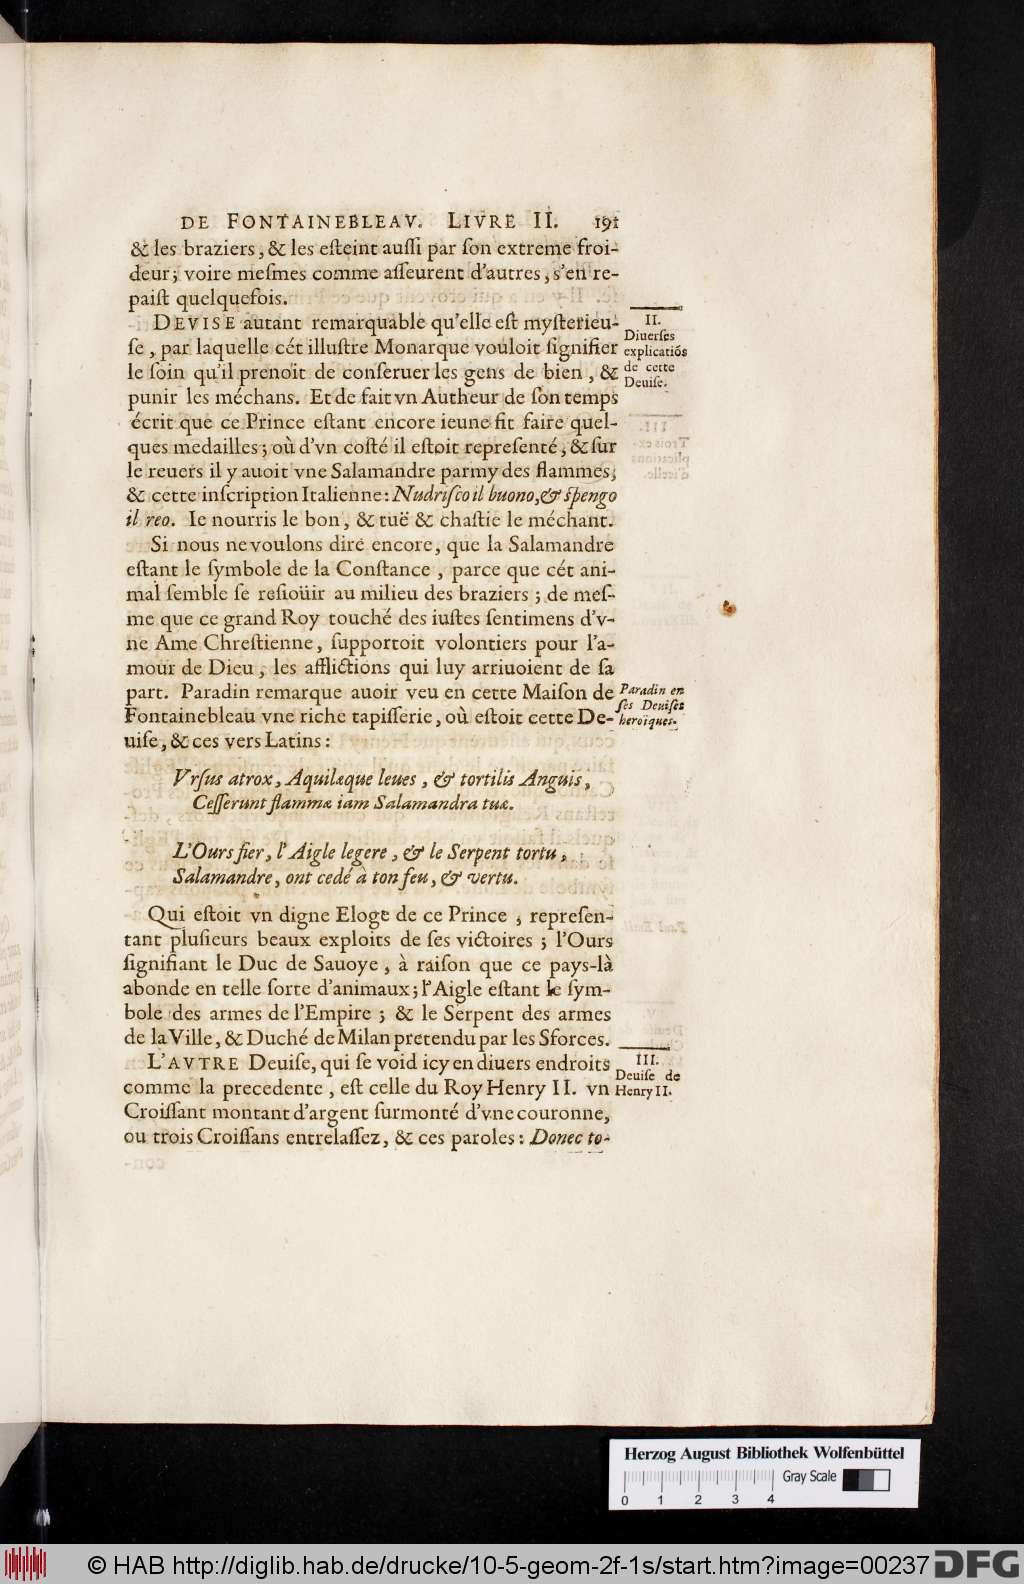 DE FONTAINEBLEAV. LIVRE II. 191
& les braziers, & les eſteint auſſi par ſon extreme froi-
deur; voire meſmes comme aſſeurent d'autres, s'en re-
paiſt quelquefois.
DEVISE autant remarquable qu'elle eſt myſterieu-
ſe, par laquelle cét illuſtre Monarque vouloit ſignifier
le ſoin qu'il prenoit de conſeruer les gens de bien, &
punir les méchans. Et de fait vn Autheur de ſon temps
écrit que ce Prince eſtant encore ieune fit faire quel-
ques medailles; où d'vn coſté il eſtoit repreſenté, & ſur
le reuers il y auoit vne Salamandre parmy des flammes,
& cette inſcription Italienne: Nudriſco il buono, & ſpengo
il reo. Ie nourris le bon, & tuë & chaſtie le méchant.
Si nous ne voulons dire encore, que la Salamandre
eſtant le ſymbole de la Conſtance, parce que cét ani-
mal ſemble ſe reſioüir au milieu des braziers; de meſ-
me que ce grand Roy touché des iuſtes ſentimens d'v-
ne Ame Chreſtienne, ſupportoit volontiers pour l'a-
mour de Dieu, les afflictions qui luy arriuoient de ſa
part. Paradin remarque auoir veu en cette Maiſon de
Fontainebleau vne riche tapiſſerie, où eſtoit cette De-
uiſe, & ces vers Latins:
Vrſus atrox, Aquilæque leues, & tortilis Anguis,
Ceſſerunt flammæ iam Salamandra tuæ.
L'Ours fier, l'Aigle legere, & le Serpent tortu,
Salamandre, ont cedé à ton feu, & vertu.
Qui eſtoit vn digne Eloge de ce Prince, repreſen-
tant pluſieurs beaux exploits de ſes victoires; l'Ours
ſignifiant le Duc de Sauoye, à raiſon que ce pays-là
abonde en telle ſorte d'animaux; l'Aigle eſtant le ſym-
bole des armes de l'Empire; & le Serpent des armes
de la Ville, & Duché de Milan pretendu par les Sforces.
L'AVTRE Deuiſe, qui ſe void icy en diuers endroits
comme la precedente, eſt celle du Roy Henry II. vn
Croiſſant montant d'argent ſurmonté d'vne couronne,
ou trois Croiſſans entrelaſſez, & ces paroles: Donec to-
II.
Diuerſes
explicatiõs
de cette
Deuiſe.
Paradin en
ſes Deuiſes
heroïques.
III.
Deuiſe de
Henry II.
Herzog August Bibliothek Wolfenbüttel
Gray Scale
0 1 2 3 4
© HAB http://diglib.hab.de/drucke/10-5-geom-2f-1s/start.htm?image=00237
DFG